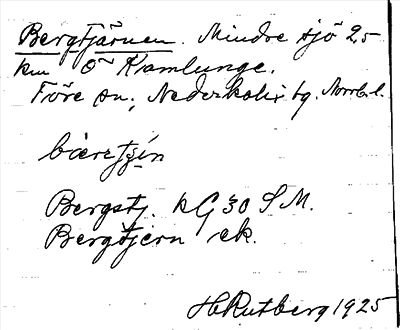 Bergtjärnen. Mindre sjö 25
km Ö Kamlunge.
Töre sn., Nederkalix tg. Norrb. l.
bæretjin
Bergstj. kG 30 S.M.
Bergtjern ek.
H Rutberg 1925